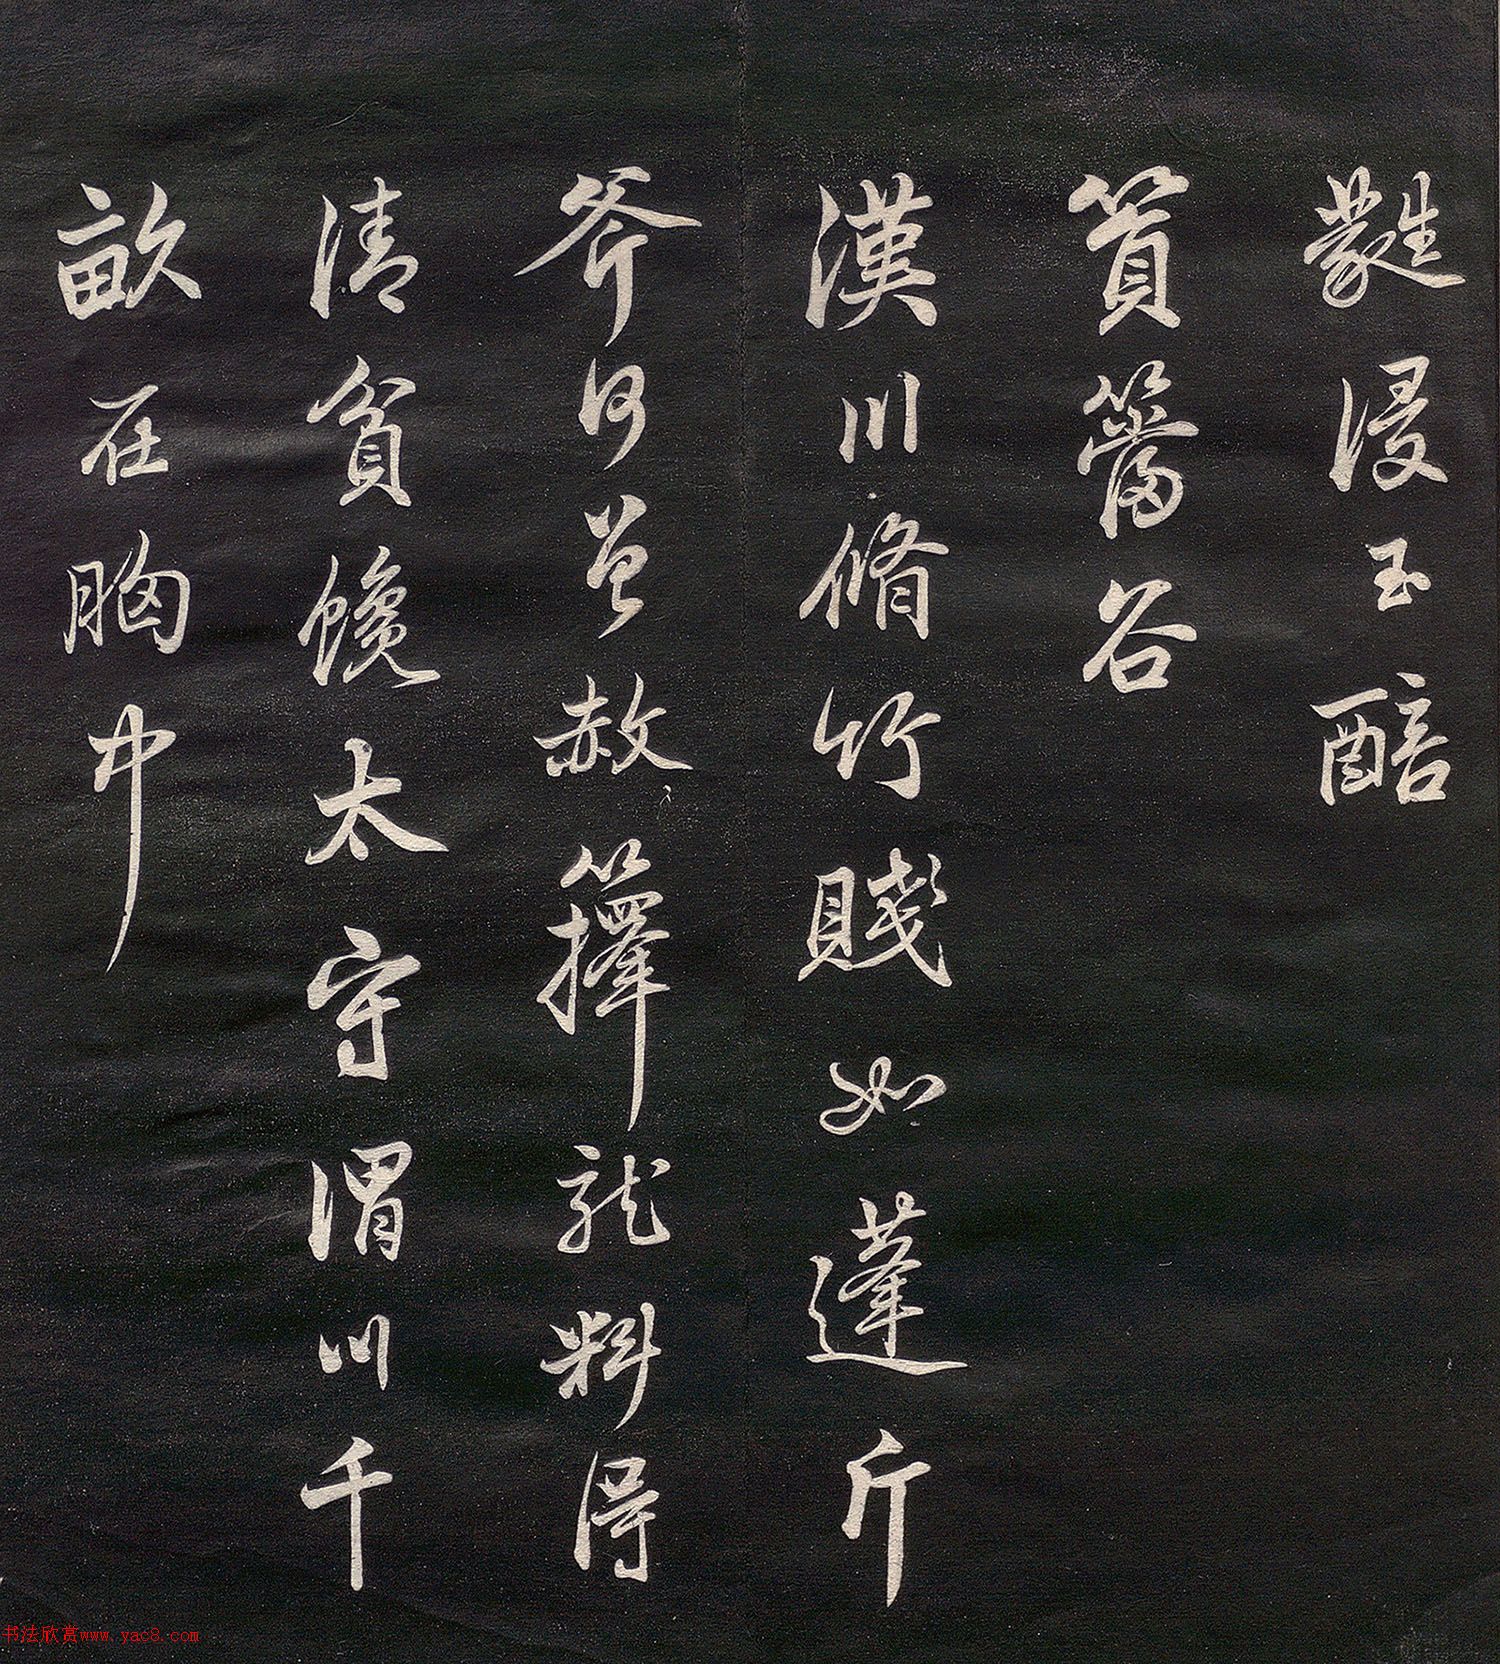 甤浸玉醅
篔簹谷
漢川脩竹賤如蓬斤
斧何曾赦籜龍料得
清貧饞太守渭川千
畝在胸中
书法欣赏www.yac8.com